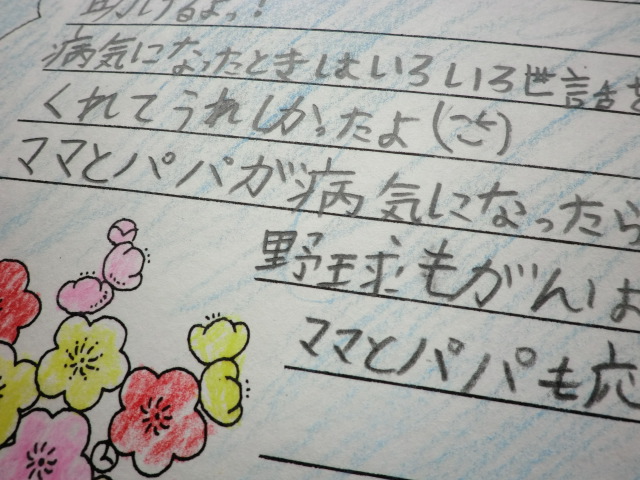 助けるよっ!
病気になったときはいろいろ世話を
くれてうれしかったよ(こら)
ママとパパが病気になったら
野球もがんば
ママとパパも応